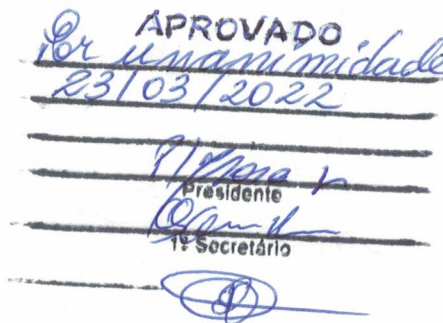 APROVADO
Por unanimidade
23/03/2022
Presidente
1º Secretário